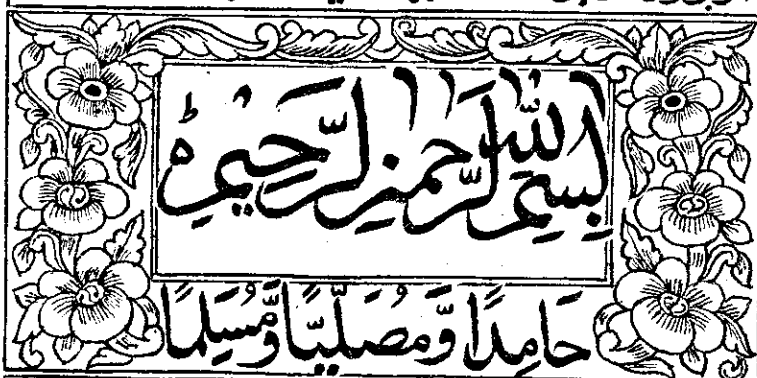 بِسْمِ اللّٰهِ الرَّحْمٰنِ الرَّحِيْمِ
حَامِدًا وَّمُصَلِّيًا وَّمُسَلِّمًا